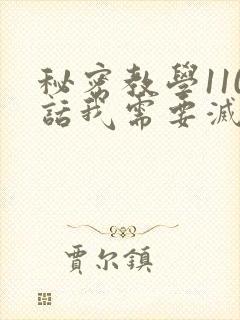 秘密教學110
話我需要滅
賈尔鎮